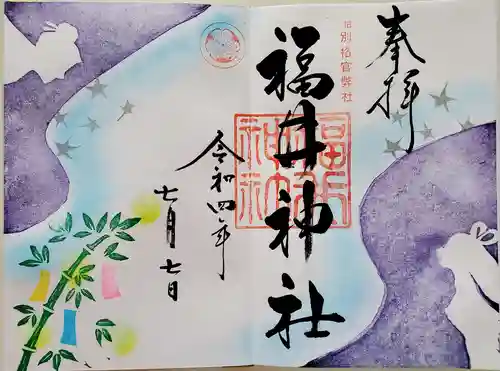 奉拝
旧別格官幣社
福井神社
福井神社
令和四年
七月七日